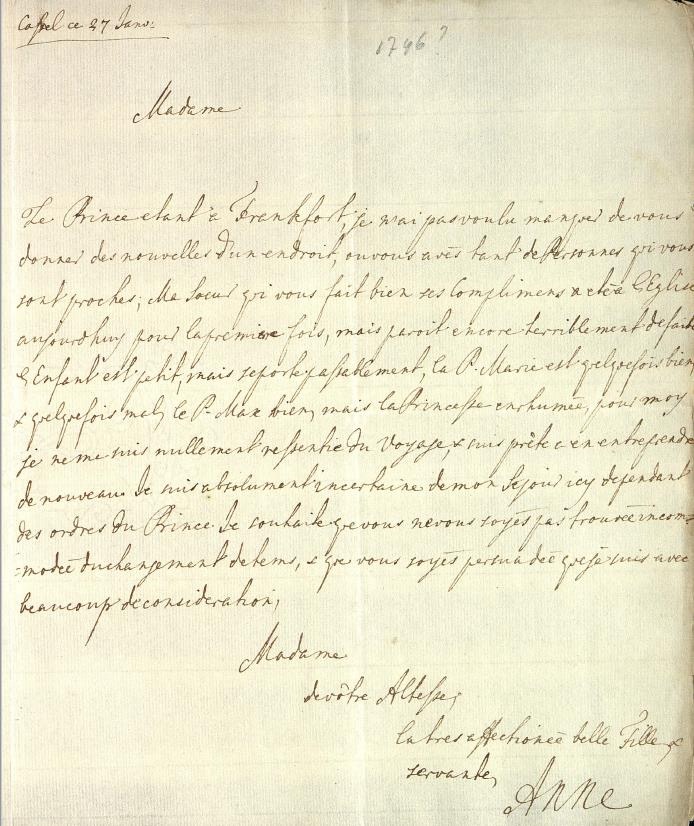 Cassel ce 27 Janv:
1746?
Madame
Le Prince etant à Frankfort, je n'ai pas voulu manquer de vous
donner des nouvelles d'un endroit, ou vous avés tant de Personnes qui vous
sont proches; Ma Soeur qui vous fait bien ses Complimens a eté a l'Eglise
aujourdhuy pour la premiere fois, mais paroit encore terriblement defaite
l'Enfant est petit, mais se porte passablement, la P. Marie est quelquefois bien,
& quelquefois mal, le P. Max bien, mais la Princesse enrhumée, pour moy
je ne me suis nullement ressentie du Voyage, & suis prête a en entreprendre
de nouveau. Je suis absolument incertaine de mon Sejour icy dependant
des ordres du Prince. Je souhaite que vous ne vous soyés pas trouvée incom=
=modée du changement de tems, & que vous soyés persuadée que je suis avec
beaucoup de consideration,
Madame
de vôtre Altesse,
la tres affectionée belle Fille &
servante,
Anne